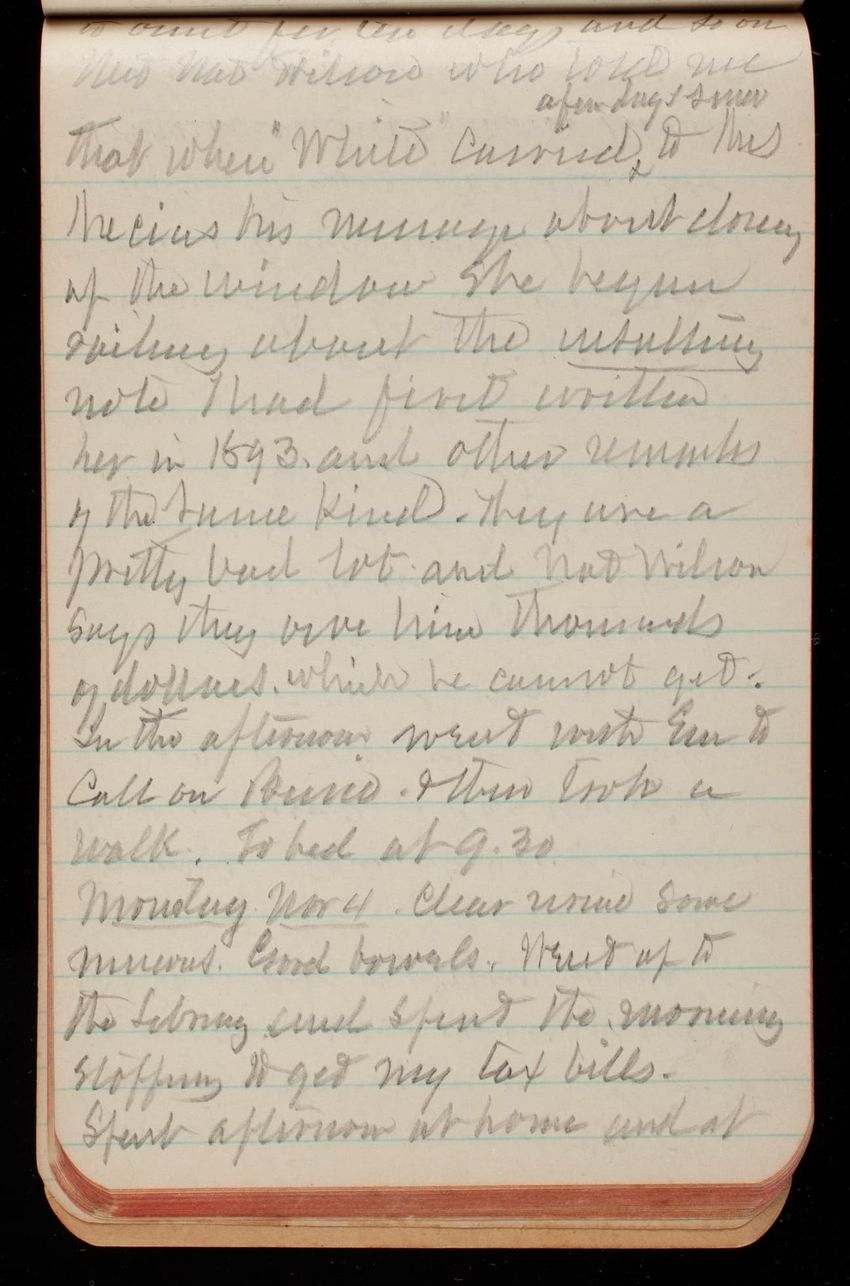 to amt for ten days and so on
Met Nat Wilson who told me
a few days since
that when "White" carried to Mrs
his message about closing
up the window she began
railing about the insulting
note I had first written
her in 1893. and other remarks
of the same kind. They are a
pretty bad lot and Nat Wilson
says they owe him thousands
of dollars. which he cannot get.
In the afternoon went with Em to
Call on & then took a
walk. To bed at 9.30
Monday Nov 4. Clear urine some
mucus. Good bowels. Went up to
the Library and spent the morning
stopping to get my tax bills.
Spent afternoon at home and at